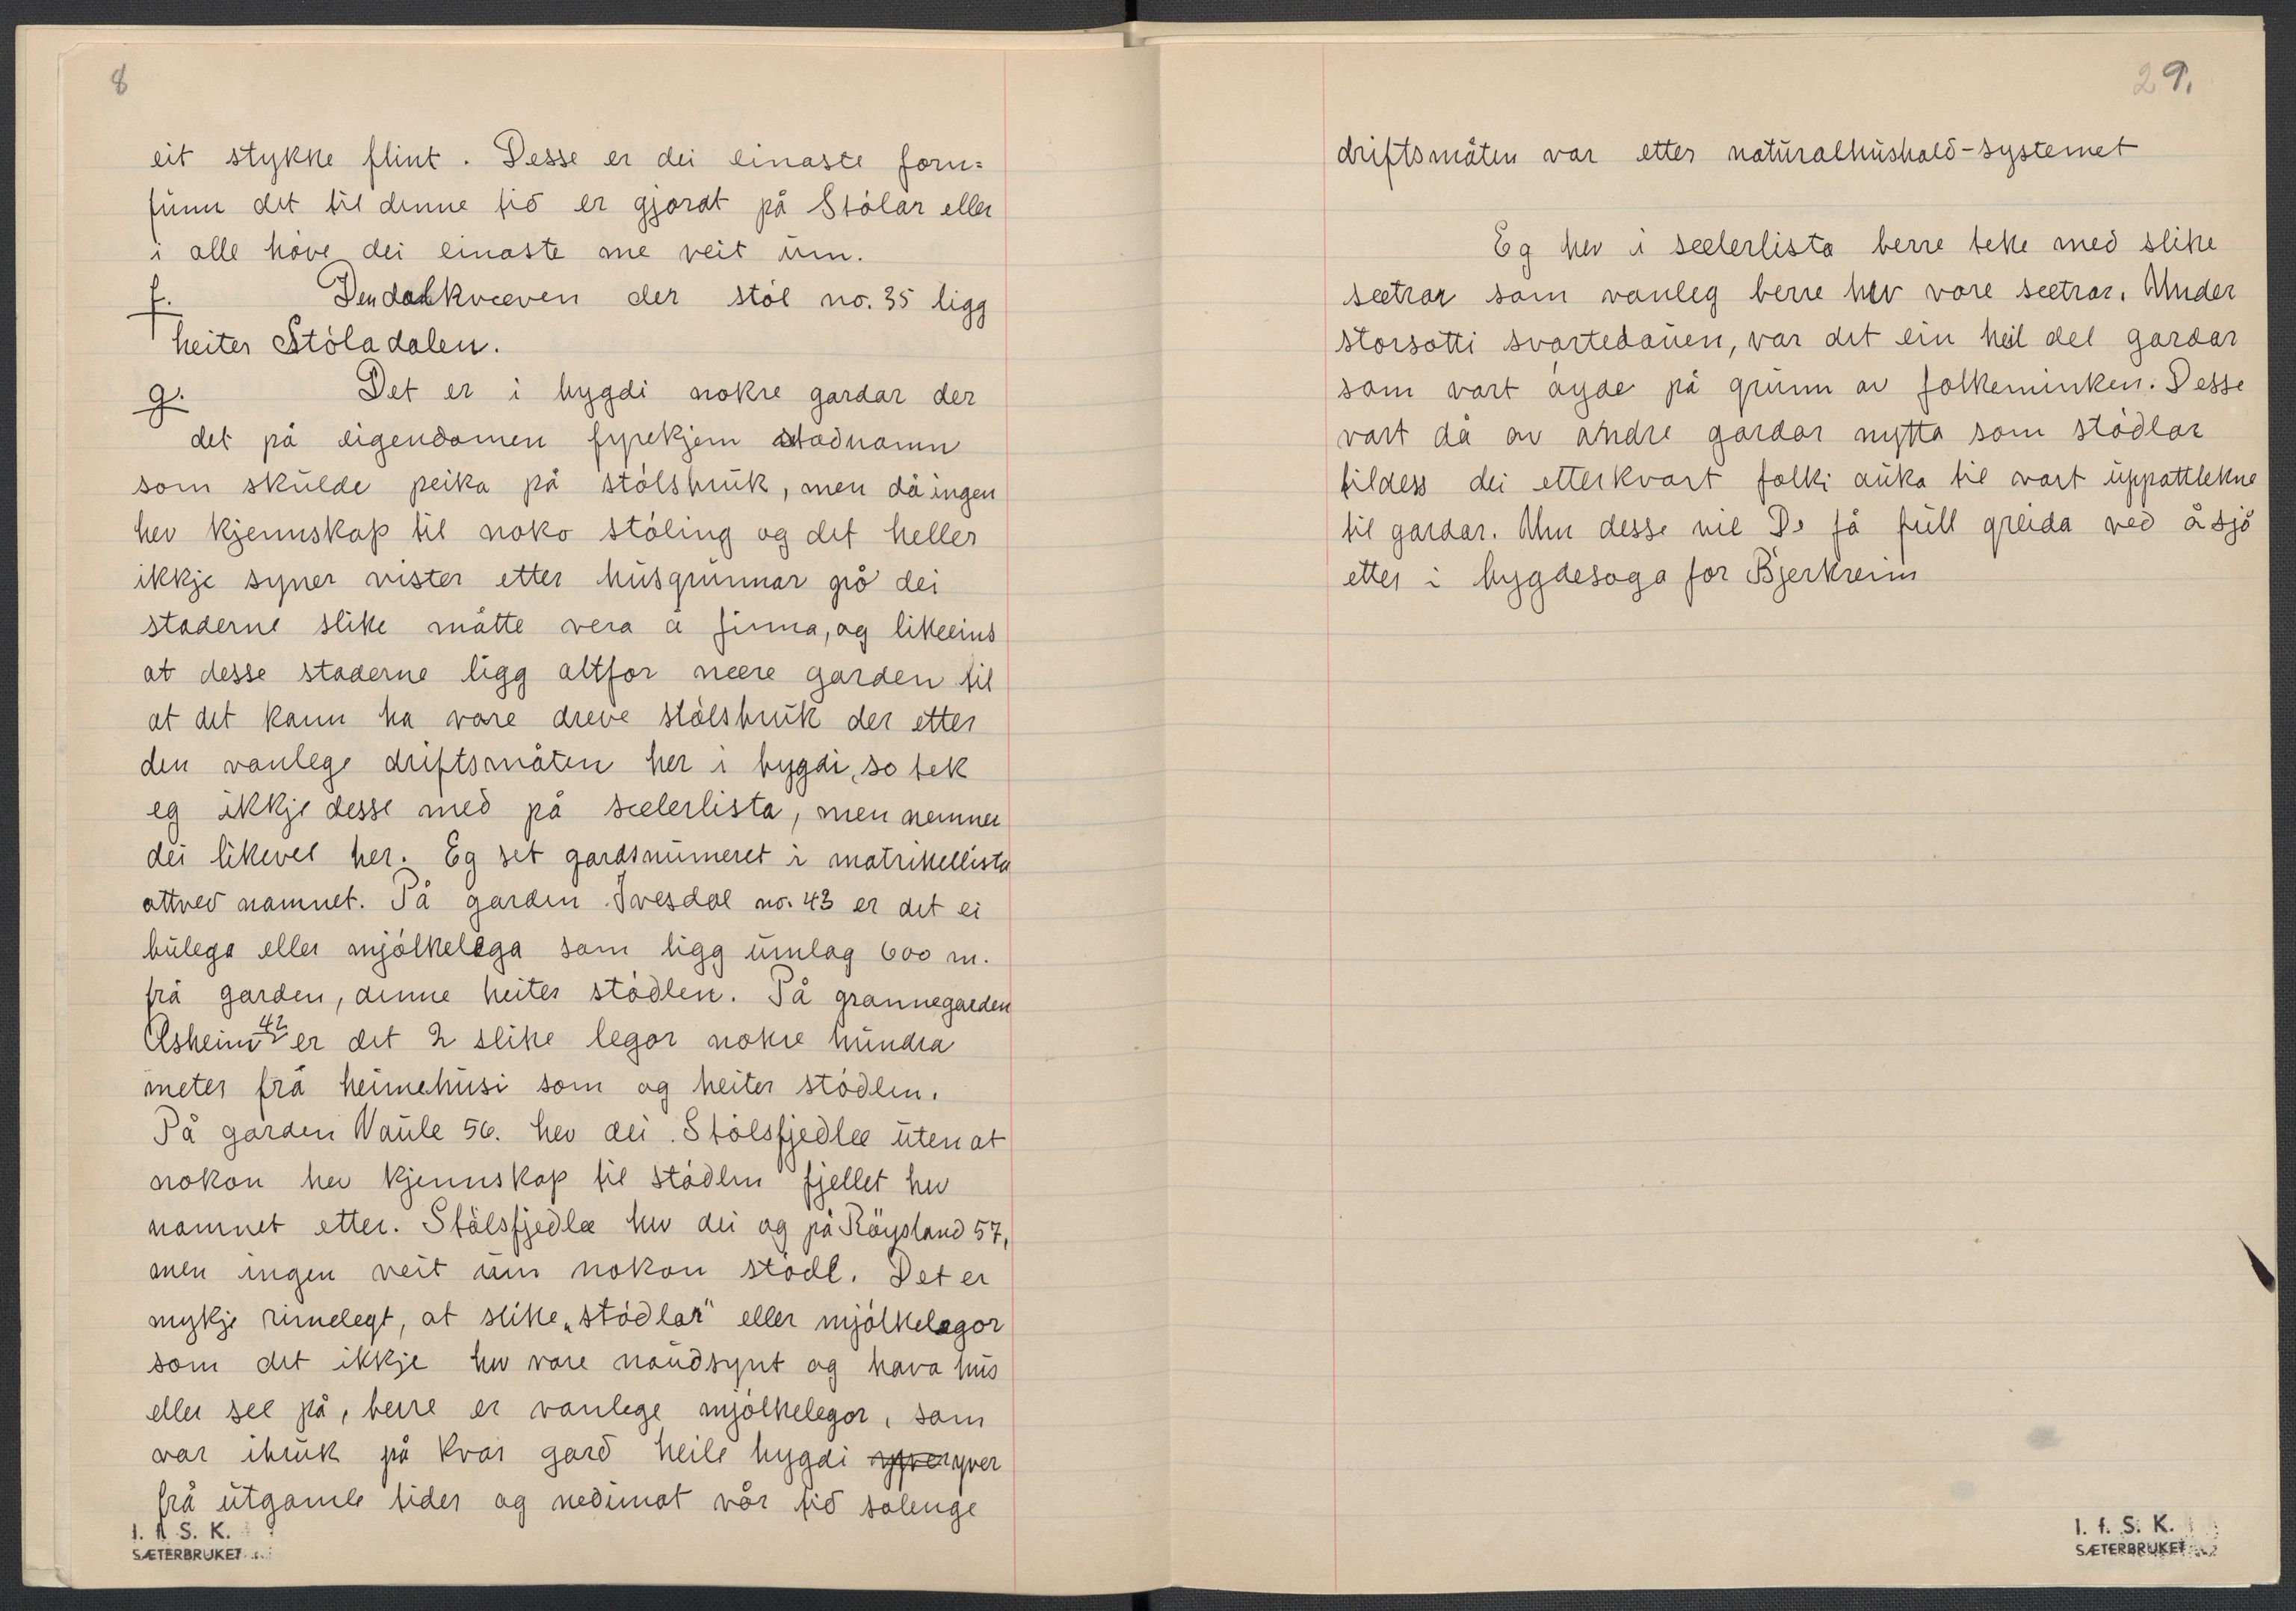 8
eit stykke flint. Desse er dei einaste forn=
funn det til denne tid er gjordt på Stólar eller
i alle höve dei einaste me veit um.
f. Den dalkvæven der stól no. 35 ligg
heiter Stóladalen.
g. Det er i bygdi nokre gardar der
det på eigendomen fyrekjem stadnamn
som skulde peika på stólsbruk, men då ingen
hev kjennskap til noko stóling og det heller
ikkje syner vister etter husgrunnar på dei
staderne slike måtte vera å finna, og likeeins
at desse staderne ligg altfor nære garden til
at det kann ha vore dreve stólsbruk der etter
den vanlege driftsmåten her i bygdi, so tek
eg ikkje desse med på sæterlista, men nemner
dei likevel her. Eg set gardsnumeret i matrikellista
attved namnet. På garden Ivesdal no. 43 er det ei
bulega eller mjólkelega som ligg umlag 600 m.
frå garden, denne heiter stódlen. På grannegarden
Asheim 42 er det 2 slike legor nokre hundra
meter frå heimehusi som og heiter stódlen.
På garden Vaule 56. hev dei Stólsfjedlæ uten at
nokon hev kjennskap til stódlen fjellet hev
namnet etter. Stólsfjedlæ hev dei og på Röysland 57,
men ingen veit um nokon stódl. Det er
mykje rimelegt, at slike „stódlar" eller mjólkelegor
som det ikkje hev vore naudsynt og hava hus
eller sel på, berre er vanlege mjólkelegor, som
var ibruk på kvar gard heile bygdi yver
frå utgamle tider og nedimot vår tid solenge
I. f. S. K.
SÆTERBRUKET
29.
driftsmåten var etter naturalhushald-systemet
Eg hev i sæterlista berre teke med slike
sætrar som vanleg berre hev vore sætrar. Under
storsotti svartedauen, var det ein heil del gardar
som vart öyde på grunn av folkeminken. Desse
vart då av andre gardar nytta som stódlar
tildess dei etterkvart folki auka til vart uppattlekne
til gardar. Um desse vil De få full greida ved å sjå
etter i bygdesoga for Bjerkreim
I. f. S. K.
SÆTERBRUKET